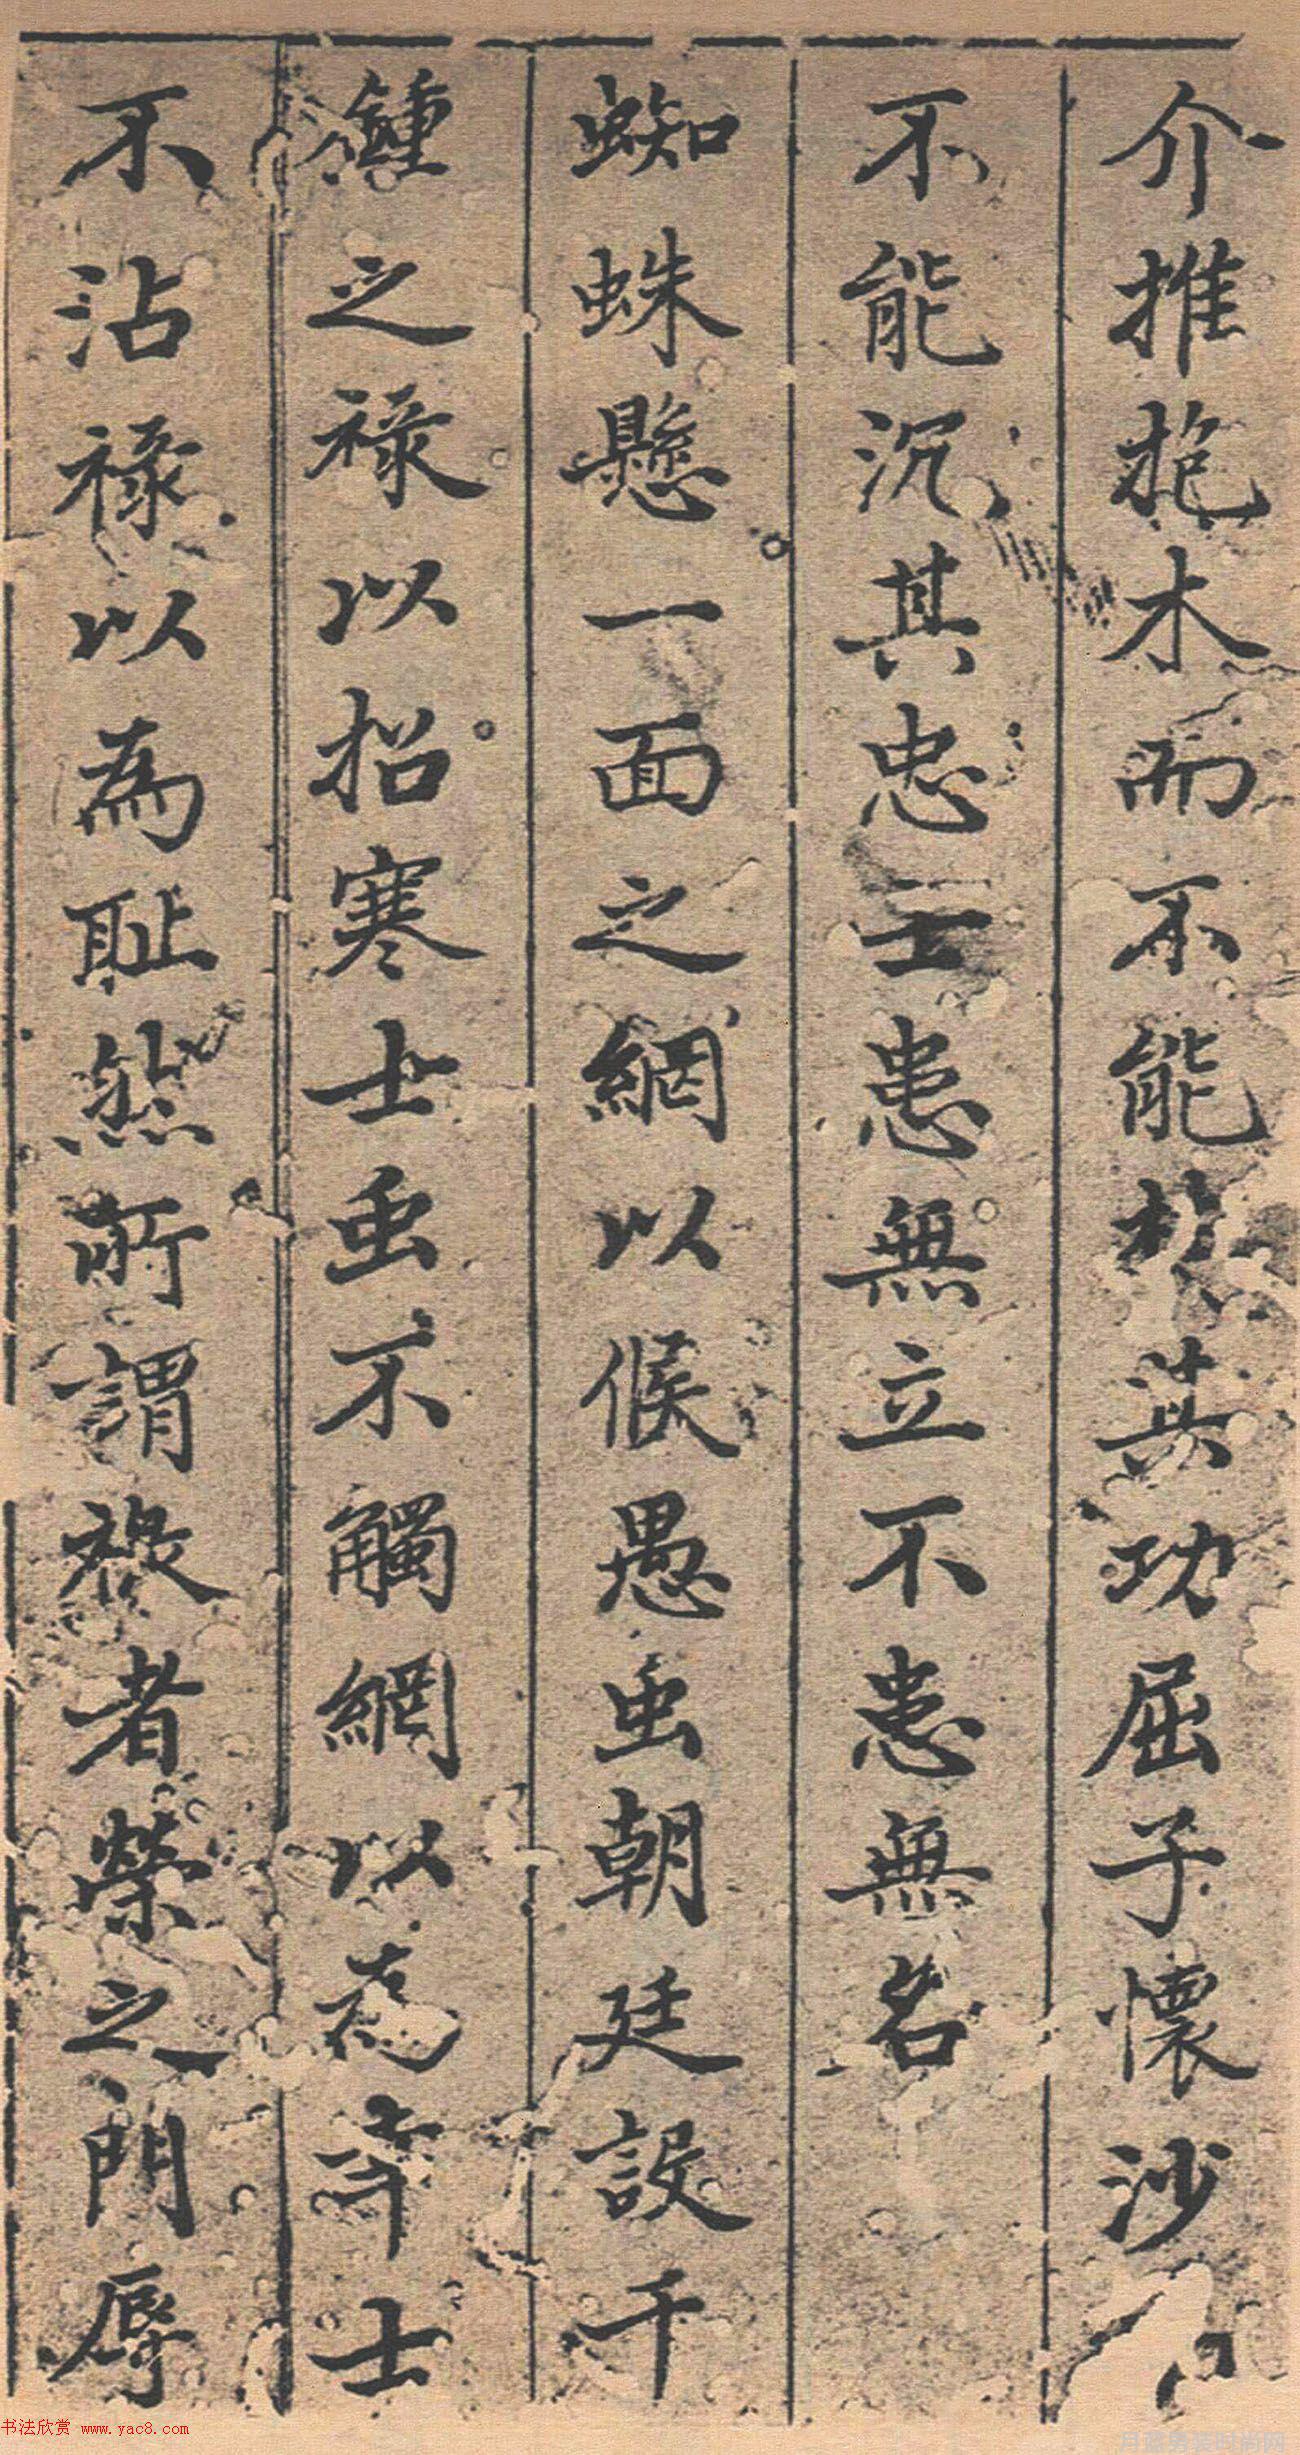 介推抱木而不能□其功屈子懷沙而
不能沉其忠士患無立不患無名
蜘蛛懸一面之網以候愚虫朝廷設千
鍾之祿以招寒士虫不觸網以為幸士
不沾祿以為恥然所謂祿者榮之門辱
书法欣赏 www.yac8.com